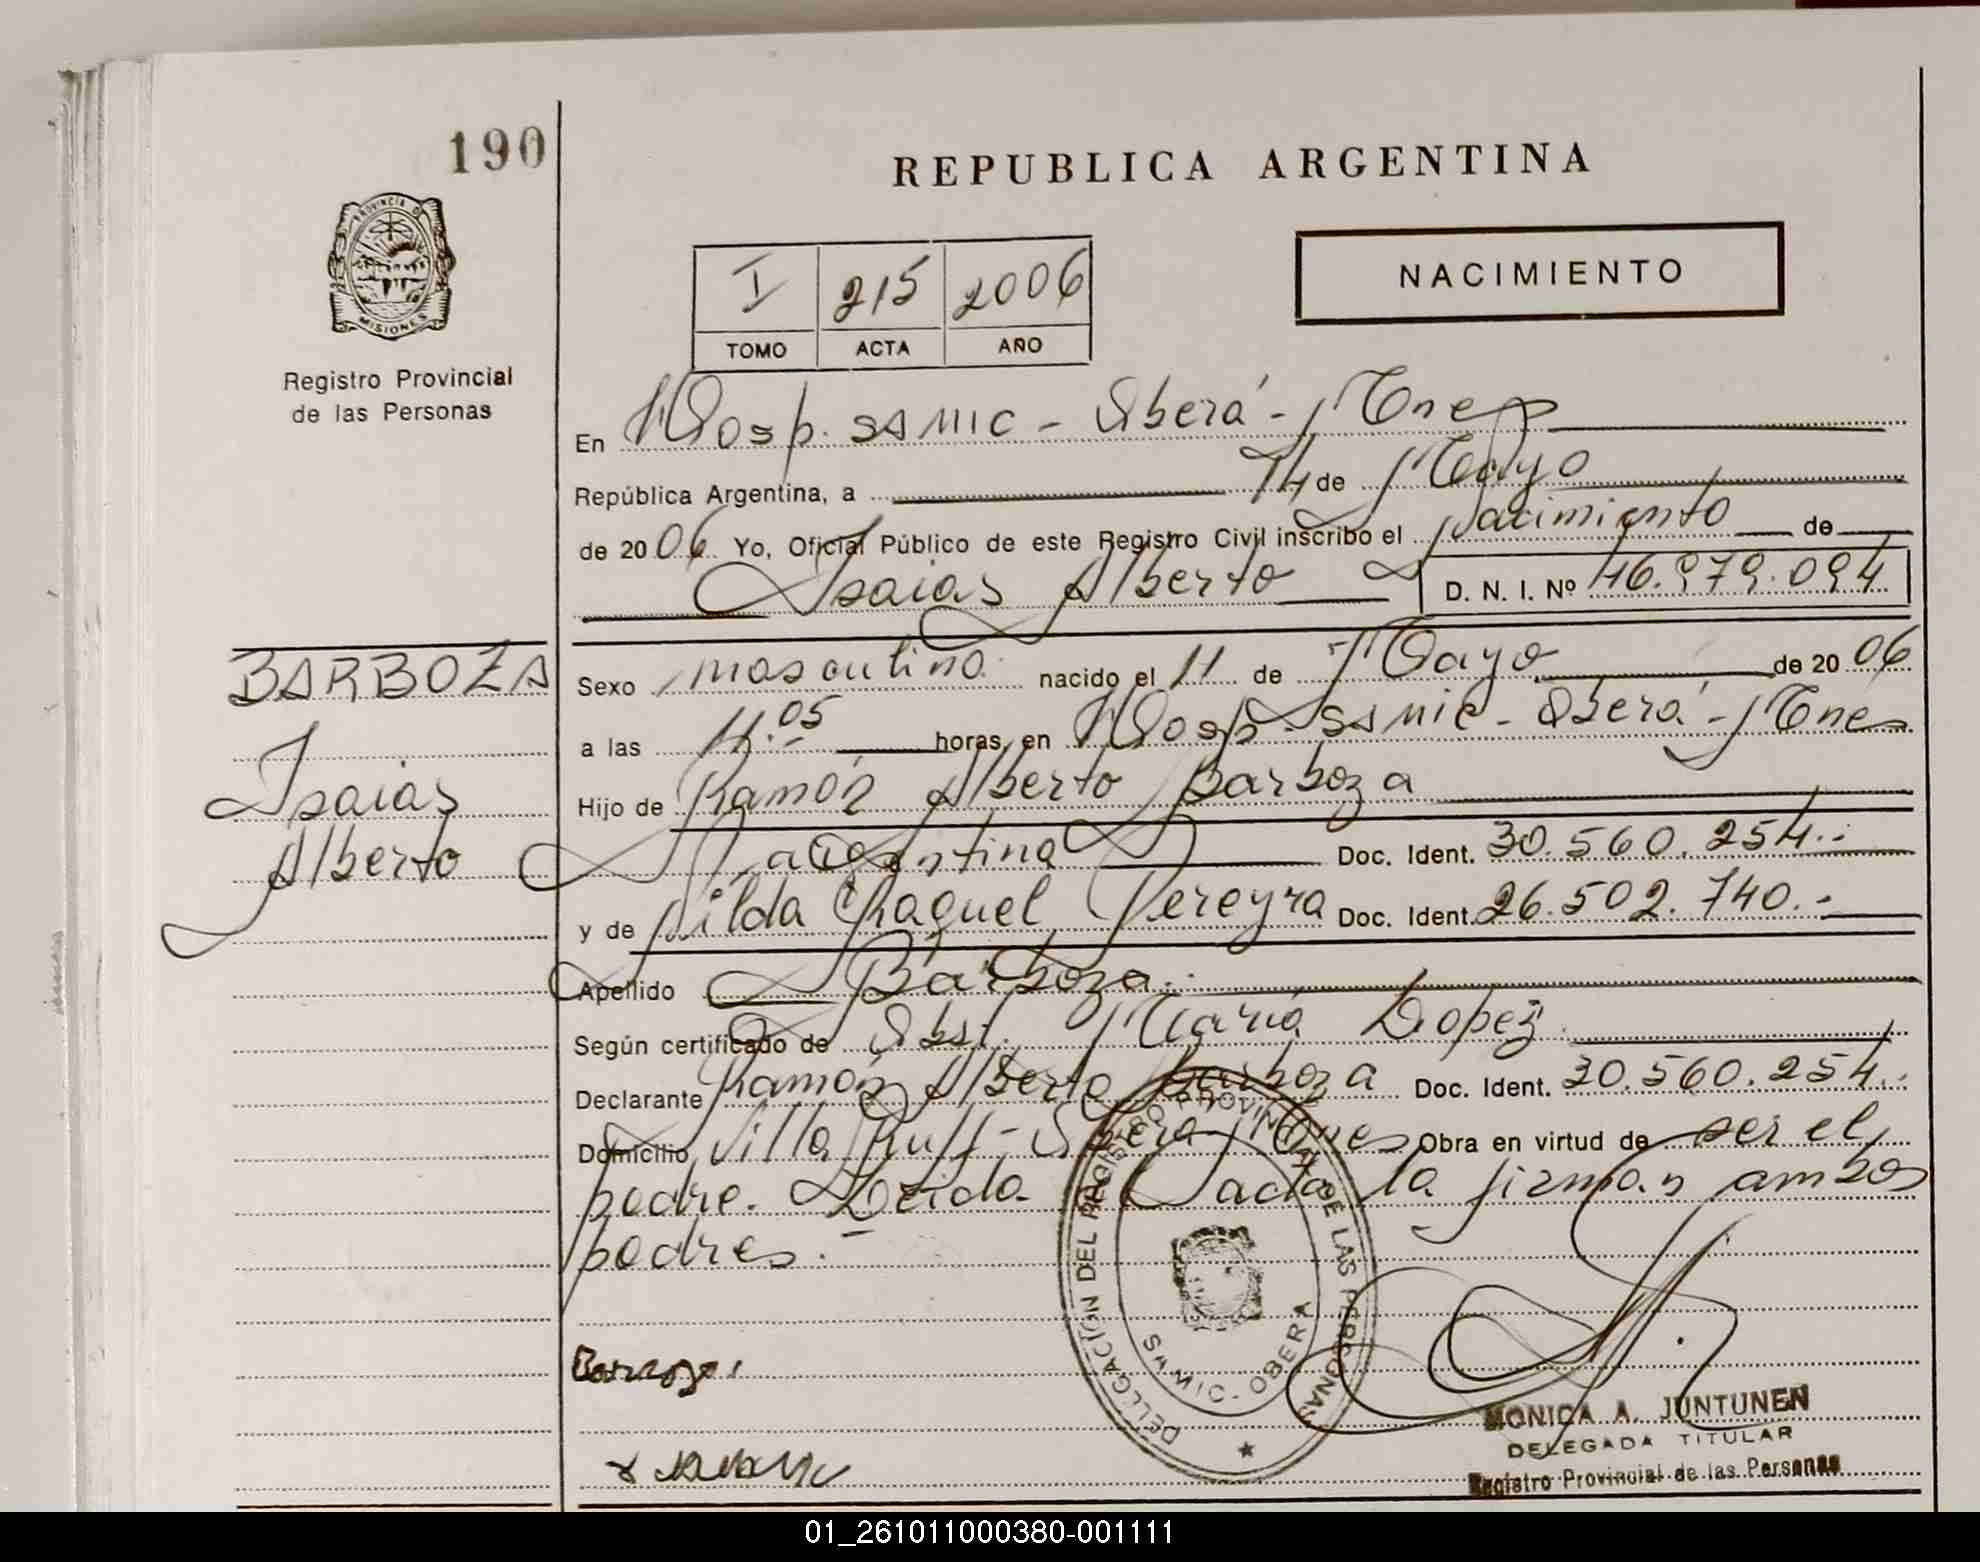 190
REPUBLICA ARGENTINA
PROVINCIA DE
MISIONES
Registro Provincial
de las Personas
NACIMIENTO
I 215 2006
TOMO ACTA AÑO
En Hosp. SAMIC - Oberá - Mnes
República Argentina, a 14 de Mayo
de 2006 Yo, Oficial Público de este Registro Civil inscribo el nacimiento de
Isaias Alberto D. N. I. Nº 46.979.094
BARBOZA
Isaias
Alberto
Sexo masculino nacido el 11 de Mayo de 2006
a las 11.05 horas, en Hosp. SAMIC - Oberá - Mnes
Hijo de Ramón Alberto Barboza
argentina Doc. Ident. 30.560.254.-
y de Nilda Raquel Pereyra Doc. Ident. 26.502.740.-
Apellido Barboza.
Según certificado de Obst. María Lopez
Declarante Ramón Alberto Barboza Doc. Ident. 30.560.254.-
Domicilio Villa Ruff - Oberá - Mnes Obra en virtud de ser el
padre. Leída el acta la firman ambos
padres.-
DELEGACION DEL REGISTRO PROVINCIAL DE LAS PERSONAS
SAMIC - OBERA
MONICA A. JUNTUNEN
DELEGADA TITULAR
Registro Provincial de las Personas
01_261011000380-001111